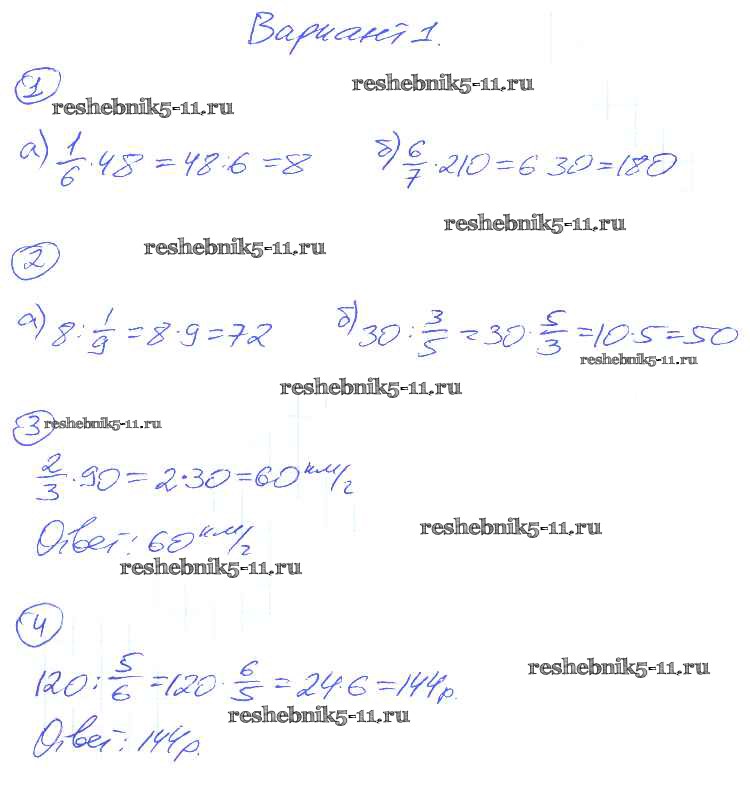 Вариант 1.
reshebnik5-11.ru
1
reshebnik5-11.ru
а) 1/6 · 48 = 48 : 6 = 8 б) 6/7 · 210 = 6 30 = 180
reshebnik5-11.ru
reshebnik5-11.ru
2
а) 8 : 1/9 = 8 · 9 = 72 б) 30 : 3/5 = 30 · 5/3 = 10 · 5 = 50
reshebnik5-11.ru
reshebnik5-11.ru
3 reshebnik5-11.ru
2/3 · 90 = 2 · 30 = 60 км/г
reshebnik5-11.ru
Ответ: 60 км/г
reshebnik5-11.ru
4
reshebnik5-11.ru
120 : 5/6 = 120 · 6/5 = 24 · 6 = 144 р.
reshebnik5-11.ru
Ответ: 144 р.